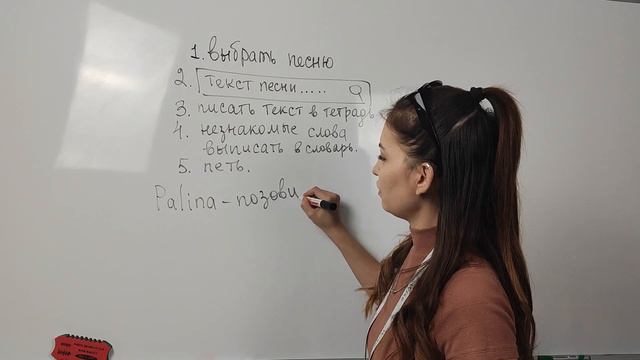 1. выбрать песню
2. текст песни.....
3. писать текст в тетрадь
4. незнакомые слова
выписать в словарь.
5. петь.
Palina - позови